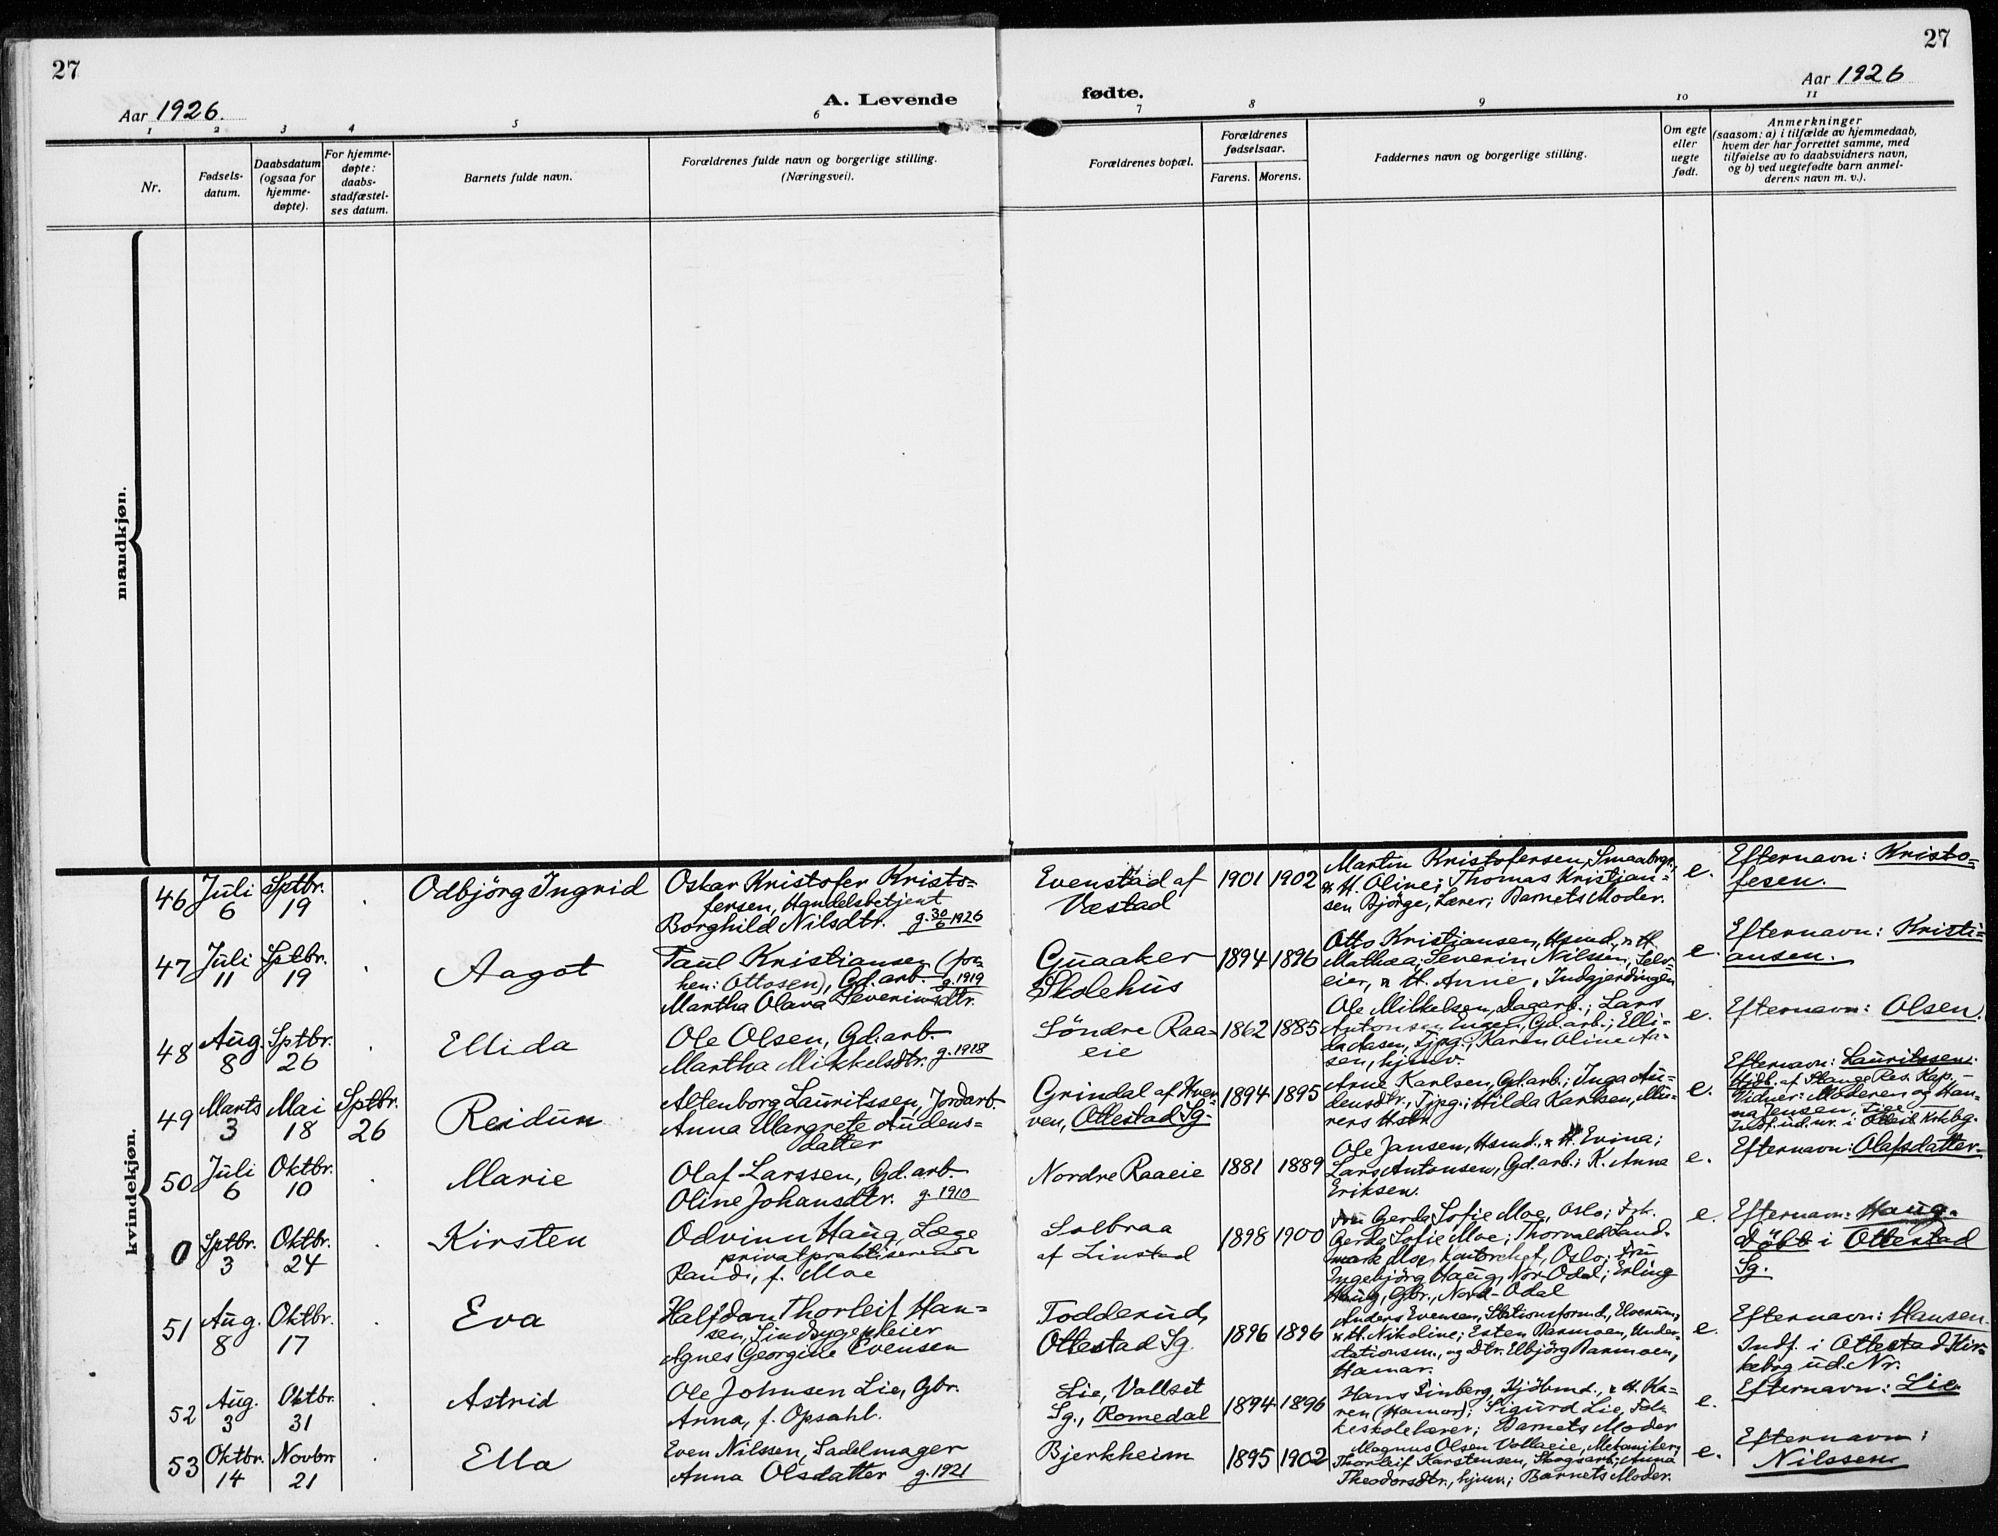 27
27
Aar 1926.
A. Levende
fødte.
Aar 1926
1 2 3 4 5 6 7 8 9 10 11
Nr.
Fødsels-
datum.
Daabsdatum
(ogsaa for
hjemme-
døpte).
For hjemme-
døpte:
daabs-
stadfæstel-
ses datum.
Barnets fulde navn.
Forældrenes fulde navn og borgerlige stilling.
(Næringsvei).
Forældrenes bopæl.
Forældrenes
fødselsaar.
Farens. Morens.
Faddernes navn og borgerlige stilling.
Om egte
eller
uegte
født.
Anmerkninger
(saasom: a) i tilfælde av hjemmedaab,
hvem der har forrettet samme, med
tilføielse av to daabsvidners navn,
og b) ved uegtefødte barn anmel-
derens navn m. v.).
mandkjøn.
kvindekjøn.
46
Juli
6
Sptbr.
19
Odbjörg Ingrid
Oskar Kristofer Kristo-
fersen, Handelsbetjent
Borghild Nilsdtr. g. 30/6 1926
Evenstad af
Væstad
1901 1902
Martin Kristofersen, Smaabrgr.,
& H. Oline; Thomas Kristian-
sen Bjørge, Lærer; Barnets Moder.
e.
Efternavn: Kristo-
fesen.
47
Juli
11
Sptbr.
19
Aagot
Paul Kristiansen (for-
hen: Ottosen), Gd.arb. g. 1919
Martha Olava Severinsdtr.
Guaaker
Skolehus
1894 1896
Otto Kristiansen, Hsmd., & H.
Mathea; Severin Nilsen, Selv-
eier, & H. Anne, Indgjerdingen
e.
Efternavn: Kristi-
ansen.
48
Aug.
8
Sptbr.
26
Ellida
Ole Olsen, Gd.arb.
Martha Mikkelsdtr. g. 1918
Söndre Raa-
eie
1862 1885
Ole Mikkelsen, Dagarb.; Lars
Antonsen Engen, Gd.arb.; Elli-
da Aasen, Tjpg.; Karen Oline Aa-
sen, hjmv.
e.
Efternavn: Olsen.
49
Marts
3
Mai
18
Sptbr.
26
Reidun
Altenborg Lauritssen, Jordarb.
Anna Margrete Audens-
datter
Grindal af Hver-
ven, Ottestad Sg.
1894 1895
Arne Karlsen, Gd.arb.; Inga Au-
densdtr., Tjpg.; Hilda Karlsen, Mu-
rers Hstr.
e.
Efternavn: Lauritssen.
Hjdb. af Stange Res. Kap.
Vidner: Moderen og Han-
na Jensen,
Indf. ud. nr. i Ottest. Kirkbg.
50
Juli
6
Oktbr.
10
Marie
Olaf Larssen, Gd.arb.
Oline Johansdtr. g. 1910
Nordre Raaeie
1881 1889
Ole Jansen, Hsmd., & H. Evina;
Lars Antonsen, Gd.arb.; K. Anna
Eriksen.
e.
Efternavn: Olafsdatter.
0
Sptbr.
3
Oktbr.
24
Kirsten
Odvinn Haug, Læge
privatpraktiserende
Randi, f. Moe
Solbraa
af Linstad
1898 1900
Fru Gerda Sofie Moe, Oslo; Frk.
Gerda Sofie Moe; Thorvald Land-
mark Moe, Kontorchef, Oslo; Fru
Ingebjörg Haug, Nor-Odal; Erling
Haug, Gbr., Nord-Odal
e.
Efternavn: Haug.
Döbt i Ottestad
Sg.
51
Aug.
8
Oktbr.
17
Eva
Halfdan Thorleif Han-
sen, Sindsygepleier
Agnes Georgine Evensen
Todderud,
Ottestad Sg.
1896 1896
Anders Evensen, Stationsformd., Elverum,
& H. Nikoline; Esten Ramoen, Under-
stationsm., og Dtr. Elbjörg Ramoen,
Hamar.
e.
Efternavn: Hansen.
Indf. i Ottestad Kir-
kebog ud. Nr.
52
Aug.
3
Oktbr.
31
Astrid
Ole Johnsen Lie, Gbr.
Anna, f. Opsahl.
Lie, Vallset
Sg., Romedal
1894 1896
Hans Linberg, Kjöbmd., & H. Ka-
ren (Hamar); Sigurd Lie, Fol-
keskolelærer; Barnets Moder
e.
Efternavn: Lie.
53
Oktbr.
14
Novbr.
21
Ella
Even Nilssen, Sadelmager
Anna Olsdatter g. 1921
Bjerkheim
1895 1902
Magnus Olsen Vollaeie, Mekaniker;
Thorleif Karstensen, Skogsarb.; Anna
Theodorsdtr., hjmv.; Barnets Moder.
e.
Efternavn:
Nilssen.